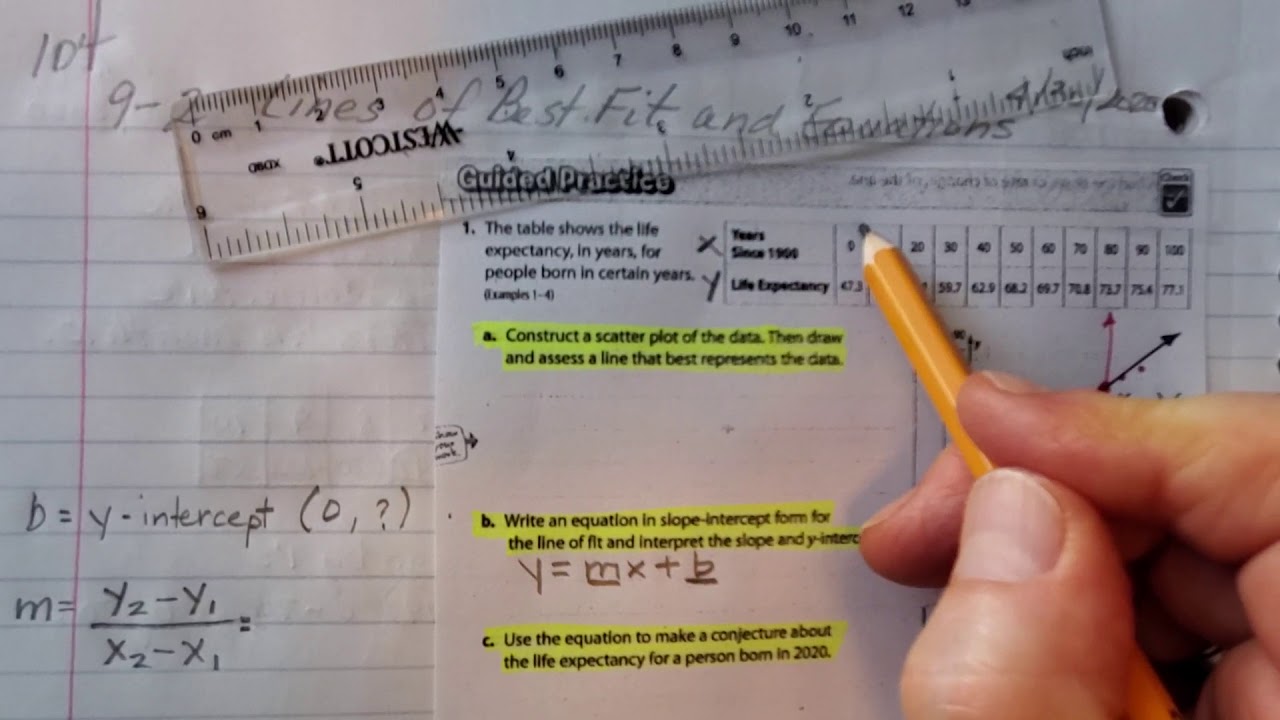 104
9-2 Lines of Best Fit and
0 cm 1 2 3 4 5 6 7 8 9 10 11 12 13
WESTCOTT®
6 5 4 3 2 1
Guided Practice
Check
1. The table shows the life
expectancy, in years, for
people born in certain years.
(Examples 1–4)
x Years Since 1900 0 20 30 40 50 60 70 80 90 100
y Life Expectancy 47.3 59.7 62.9 68.2 69.7 70.8 73.7 75.4 77.1
a. Construct a scatter plot of the data. Then draw
and assess a line that best represents the data.
show
your
work.
b = y-intercept (0, ?)
m = y₂ - y₁ / x₂ - x₁ =
b. Write an equation in slope-intercept form for
the line of fit and interpret the slope and y-interc
y = mx + b
c. Use the equation to make a conjecture about
the life expectancy for a person born in 2020.